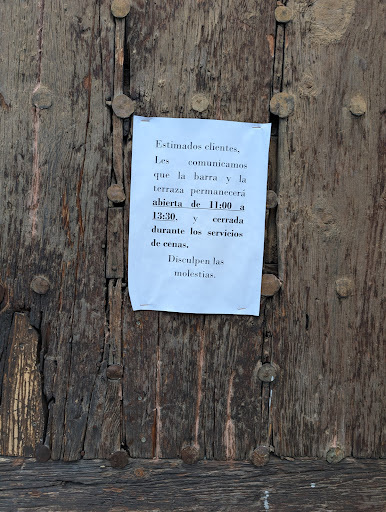 Estimados clientes,
Les comunicamos
que la barra y la
terraza permanecerá
abierta de 11:00 a
13:30, y cerrada
durante los servicios
de cenas.
Disculpen las
molestias.